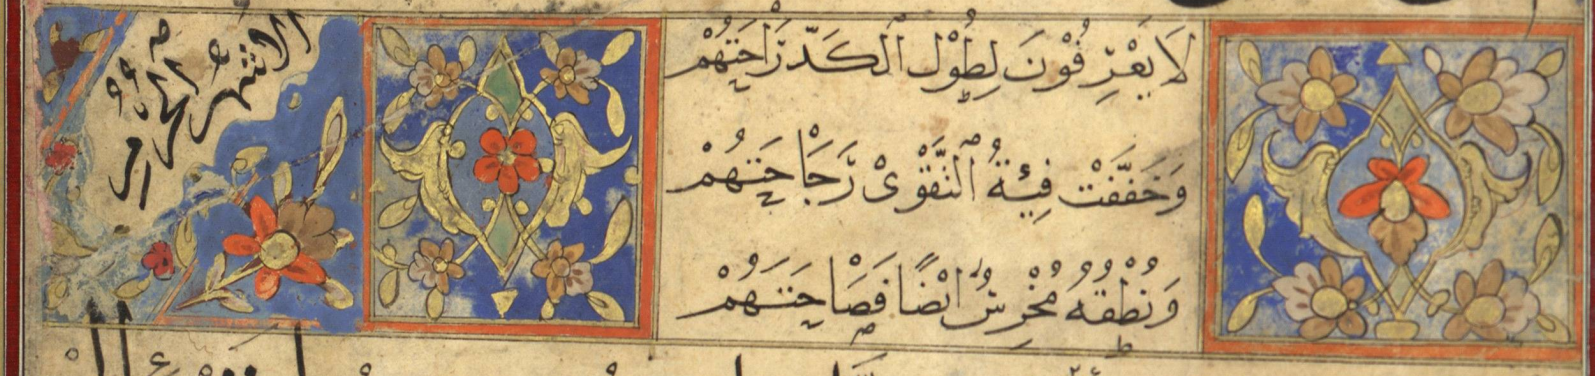 لَا يَعْرِفُوْنَ لِطُوْلِ ٱلْكَدِّ رَاحَتَهُمْ
وَخَفَّفَتْ فِئَةُ ٱلتَّقْوَىْ رَجَاحَتَهُمْ
وَنُطْقُهُ مُخْرِسٌ اَيْضًا فَصَاحَتَهُمْ
الاشهر الحرم